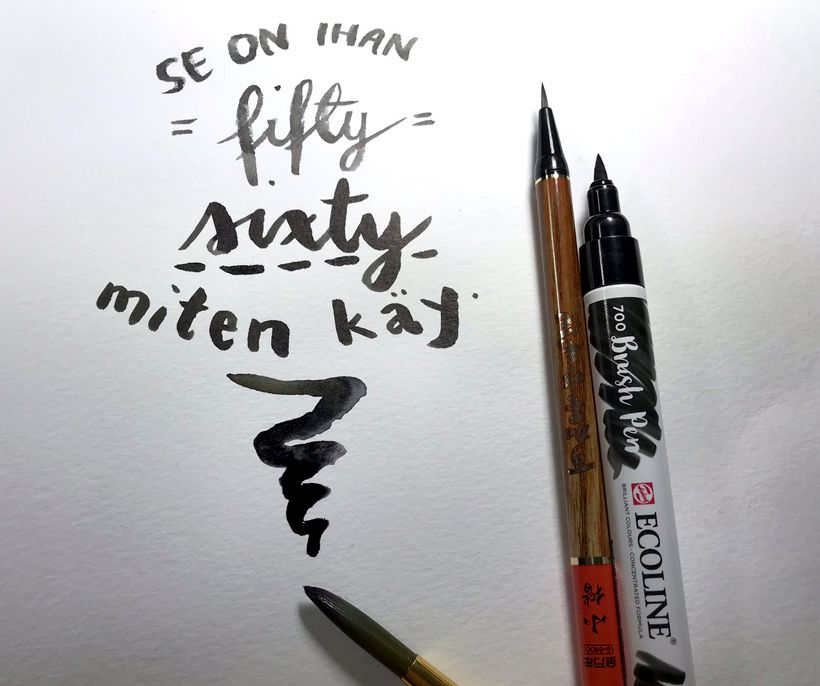 SE ON IHAN
= fifty =
sixty
miten käy.
700 Brush Pen
ECOLINE®
BRILLIANT COLOURS - CONCENTRATED FORMULA
G-6400